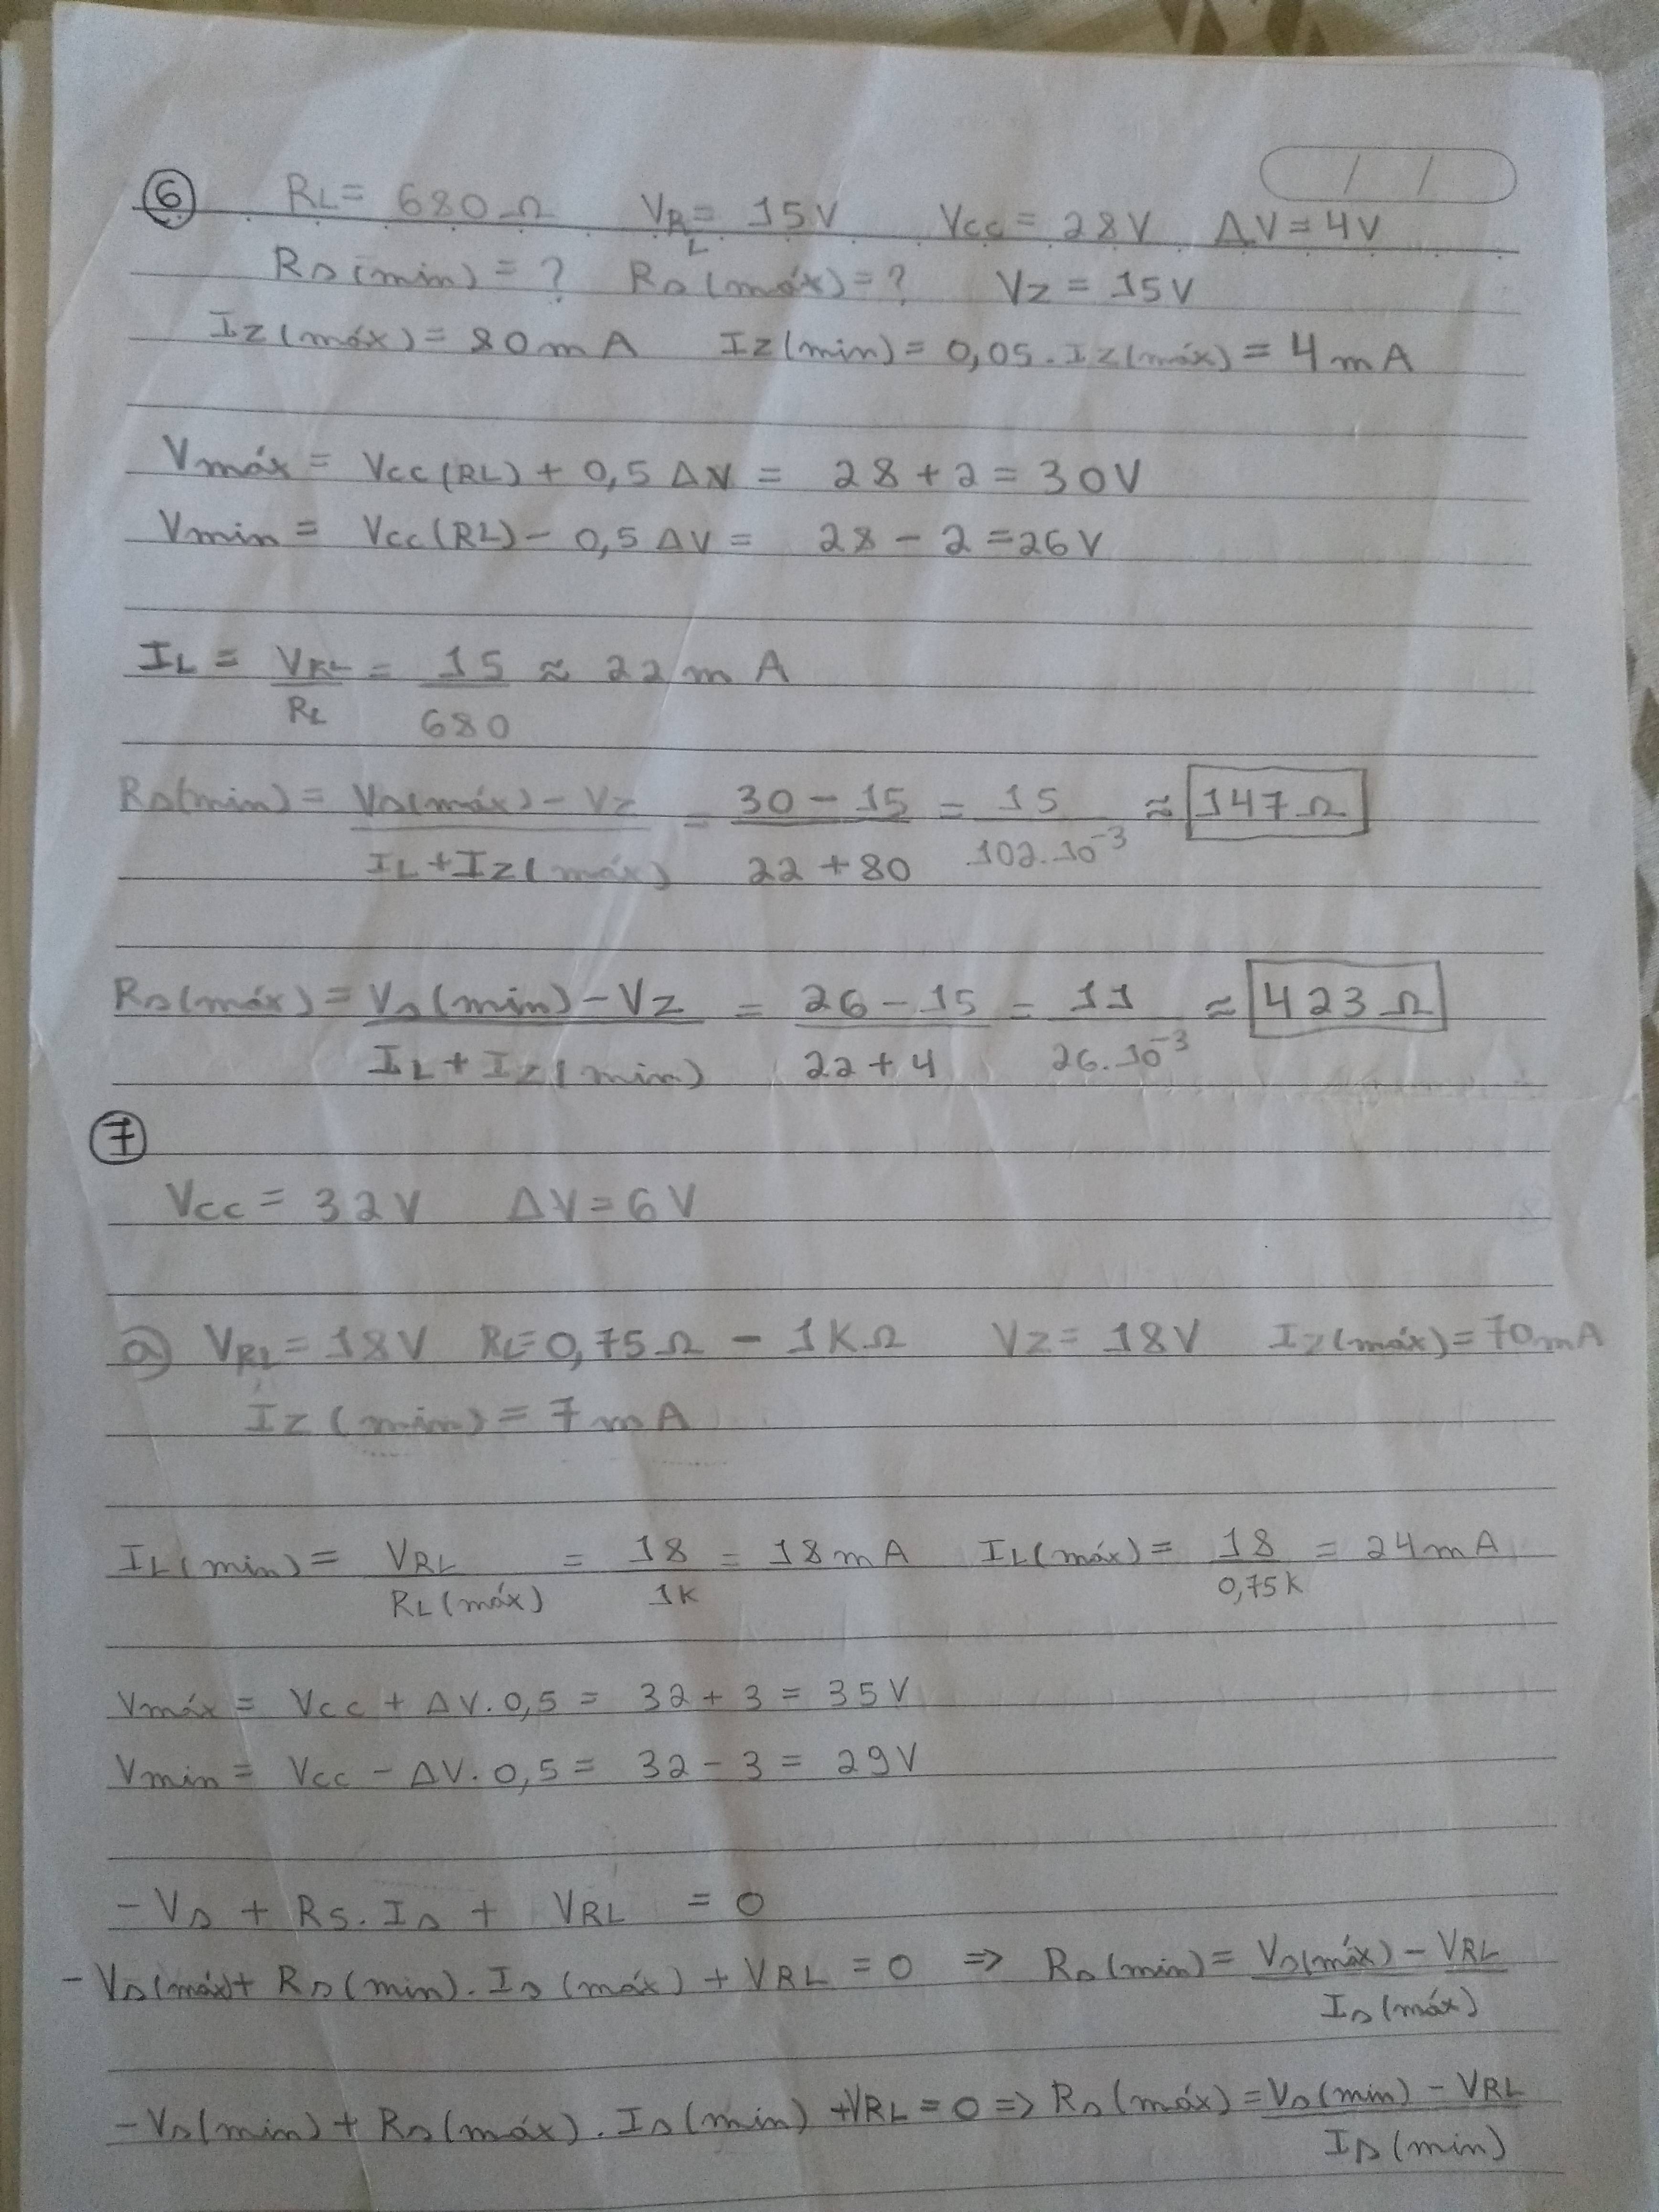 6 RL = 680 Ω VRL = 15V Vcc = 28V ΔV = 4V
Rs(min) = ? Rs(máx) = ? Vz = 15V
Iz(máx) = 80mA Iz(min) = 0,05.Iz(máx) = 4mA
Vmáx = Vcc(RL) + 0,5 ΔV = 28 + 2 = 30V
Vmin = Vcc(RL) - 0,5 ΔV = 28 - 2 = 26V
IL = VRL/RL = 15/680 ≈ 22mA
Rs(min) = Vs(máx) - Vz / IL + Iz(máx) = 30 - 15 / 22 + 80 = 15 / 102.10⁻³ ≈ 147Ω
Rs(máx) = Vs(min) - Vz / IL + Iz(min) = 26 - 15 / 22 + 4 = 11 / 26.10⁻³ ≈ 423Ω
7
Vcc = 32V ΔV = 6V
a) VRL = 18V RL = 0,75Ω - 1KΩ Vz = 18V Iz(máx) = 70mA
Iz(min) = 7mA
IL(min) = VRL / RL(máx) = 18 / 1K = 18mA IL(máx) = 18 / 0,75K = 24mA
Vmáx = Vcc + ΔV.0,5 = 32 + 3 = 35V
Vmin = Vcc - ΔV.0,5 = 32 - 3 = 29V
-Vs + RS.Is + VRL = 0
-Vs(máx) + Rs(min).Is(máx) + VRL = 0 => Rs(min) = Vs(máx) - VRL / Is(máx)
-Vs(min) + Rs(máx).Is(min) + VRL = 0 => Rs(máx) = Vs(min) - VRL / Is(min)